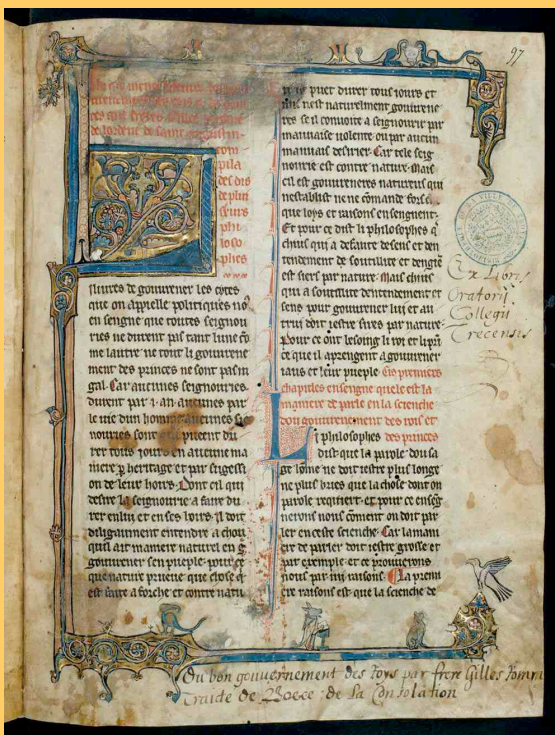 97
de lordene de saint augustin
com
pila
des dis
de plu
seurs
phi
loso
phes
liures de gouuerner les cytes
que on appielle politiques nō
en sengne que toutes seignou
ries ne durent pas tant lune cō
me lautre ne tout li gouuerne
ment des princes ne sont pas in
gal. Car aucunes seignouries
durent par .i. an aucunes par
le uie dun homme aucunes sei
nouries sont qui pueent du
rer tous iours en aucune ma
niere p heritage et par sugessi
on de leur hoirs. Dont cil qui
desire la seignourie a faire du
rer en lui et en ses hoirs il doit
diligaument entendre a chou
quil ait maniere naturel en
gouuerner sen pueple. pour ce
que nature prueue que chose q̄
est faite a forche et contre natu
puet durer tous iours et
nus nest naturelment gouuerne
res se il conuoite a seignourir par
mauuaise uolente ou par aucun
mauuais desirier. Car tele seig
nourie est contre nature. Mais
cil est gouuerneres natureus qui
nestablist ne ne cōmande fors ce
que loys et raisons ensengnent.
Et pour ce dist li philosophes q̄
chius qui a defaute de sens et den
tendement de soutillite et dengiē
est siers par nature. Mais chius
qui a soutillite dentendement et
sens pour gouuerner lui et au
trui doit iestre sires par nature.
Pour ce ont besoing li roi et li prī
ce que il aprengent a gouuerner
iaus et leur pueple. Cis premiers
chapitles ensengne quele est la
maniere de parle en la scienche
dou gouuernement des rois et
Li philosophes des princes
dist que la parole dou sa
ge lōme ne doit iestre plus longe
ne plus bries que la chose dont on
parole requiert. et pour ce enseḡ
nerons nous cōment on doit par
ler en ceste scienche. Car la mani
ere de parler doit iestre grosse et
par exemple et ce prouuerons
nous par .iii. raisons. La premi
ere raisons est que la scienche de
Ex Libris
Oratorij
Collegii
Trecensis
Du bon gouuernement des Roys par frere Gilles Romm
Traité de Boece de la Consolation